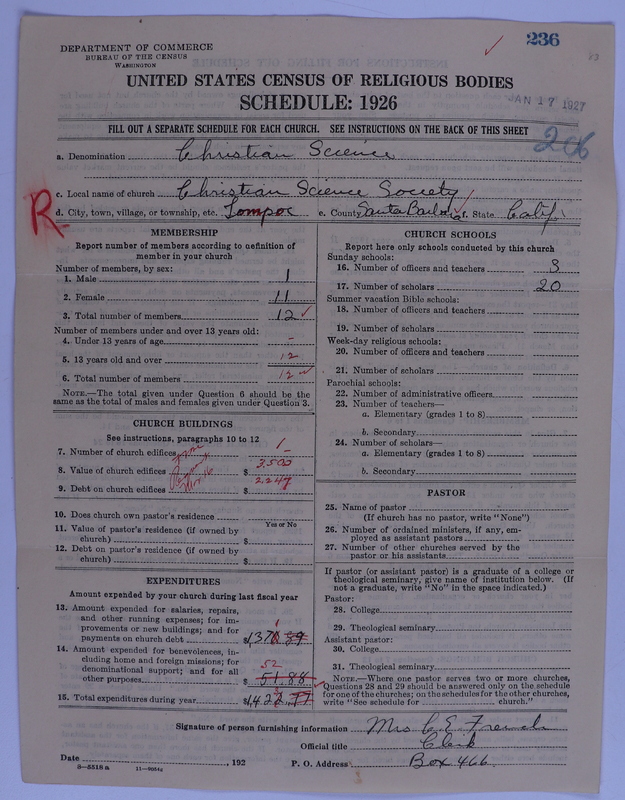 236
83
DEPARTMENT OF COMMERCE
BUREAU OF THE CENSUS
WASHINGTON
UNITED STATES CENSUS OF RELIGIOUS BODIES
SCHEDULE: 1926
JAN 17 1927
FILL OUT A SEPARATE SCHEDULE FOR EACH CHURCH. SEE INSTRUCTIONS ON THE BACK OF THIS SHEET
206
a. Denomination Christian Science
c. Local name of church Christian Science Society
R
d. City, town, village, or township, etc. Lompoc e. County Santa Barbara f. State Calif
MEMBERSHIP
Report number of members according to definition of
member in your church
Number of members, by sex:
1. Male 1
2. Female 11
3. Total number of members 12
Number of members under and over 13 years old:
4. Under 13 years of age -
5. 13 years old and over 12
6. Total number of members 12
NOTE.—The total given under Question 6 should be the
same as the total of males and females given under Question 3.
CHURCH BUILDINGS
See instructions, paragraphs 10 to 12
7. Number of church edifices 1
8. Value of church edifices $ 3.500
9. Debt on church edifices $ 2.247
10. Does church own pastor's residence
Yes or No
11. Value of pastor's residence (if owned by
church) $
12. Debt on pastor's residence (if owned by
church) $
EXPENDITURES
Amount expended by your church during last fiscal year
13. Amount expended for salaries, repairs,
and other running expenses; for im-
provements or new buildings; and for
payments on church debt $1,370 89
14. Amount expended for benevolences, in-
cluding home and foreign missions; for
denominational support; and for all
52
other purposes $ 51.88
15. Total expenditures during year $1,422.77
CHURCH SCHOOLS
Report here only schools conducted by this church
Sunday schools:
16. Number of officers and teachers 3
17. Number of scholars 20
Summer vacation Bible schools:
18. Number of officers and teachers
19. Number of scholars
Week-day religious schools:
20. Number of officers and teachers
21. Number of scholars
Parochial schools:
22. Number of administrative officers
23. Number of teachers—
a. Elementary (grades 1 to 8)
b. Secondary
24. Number of scholars—
a. Elementary (grades 1 to 8)
b. Secondary
PASTOR
25. Name of pastor
(If church has no pastor, write "None")
26. Number of ordained ministers, if any, em-
ployed as assistant pastors
27. Number of other churches served by the
pastor or his assistants
If pastor (or assistant pastor) is a graduate of a college or
theological seminary, give name of institution below. (If
not a graduate, write "No" in the space indicated.)
Pastor:
28. College
29. Theological seminary
Assistant pastor:
30. College
31. Theological seminary
NOTE.—Where one pastor serves two or more churches,
Questions 28 and 29 should be answered only on the schedule
for one of the churches; on the schedules for the other churches,
write "See schedule for church."
Signature of person furnishing information Mrs C E French
Official title Clerk
Date , 192 P. O. Address Box 466
8—5518 a 11—0054a